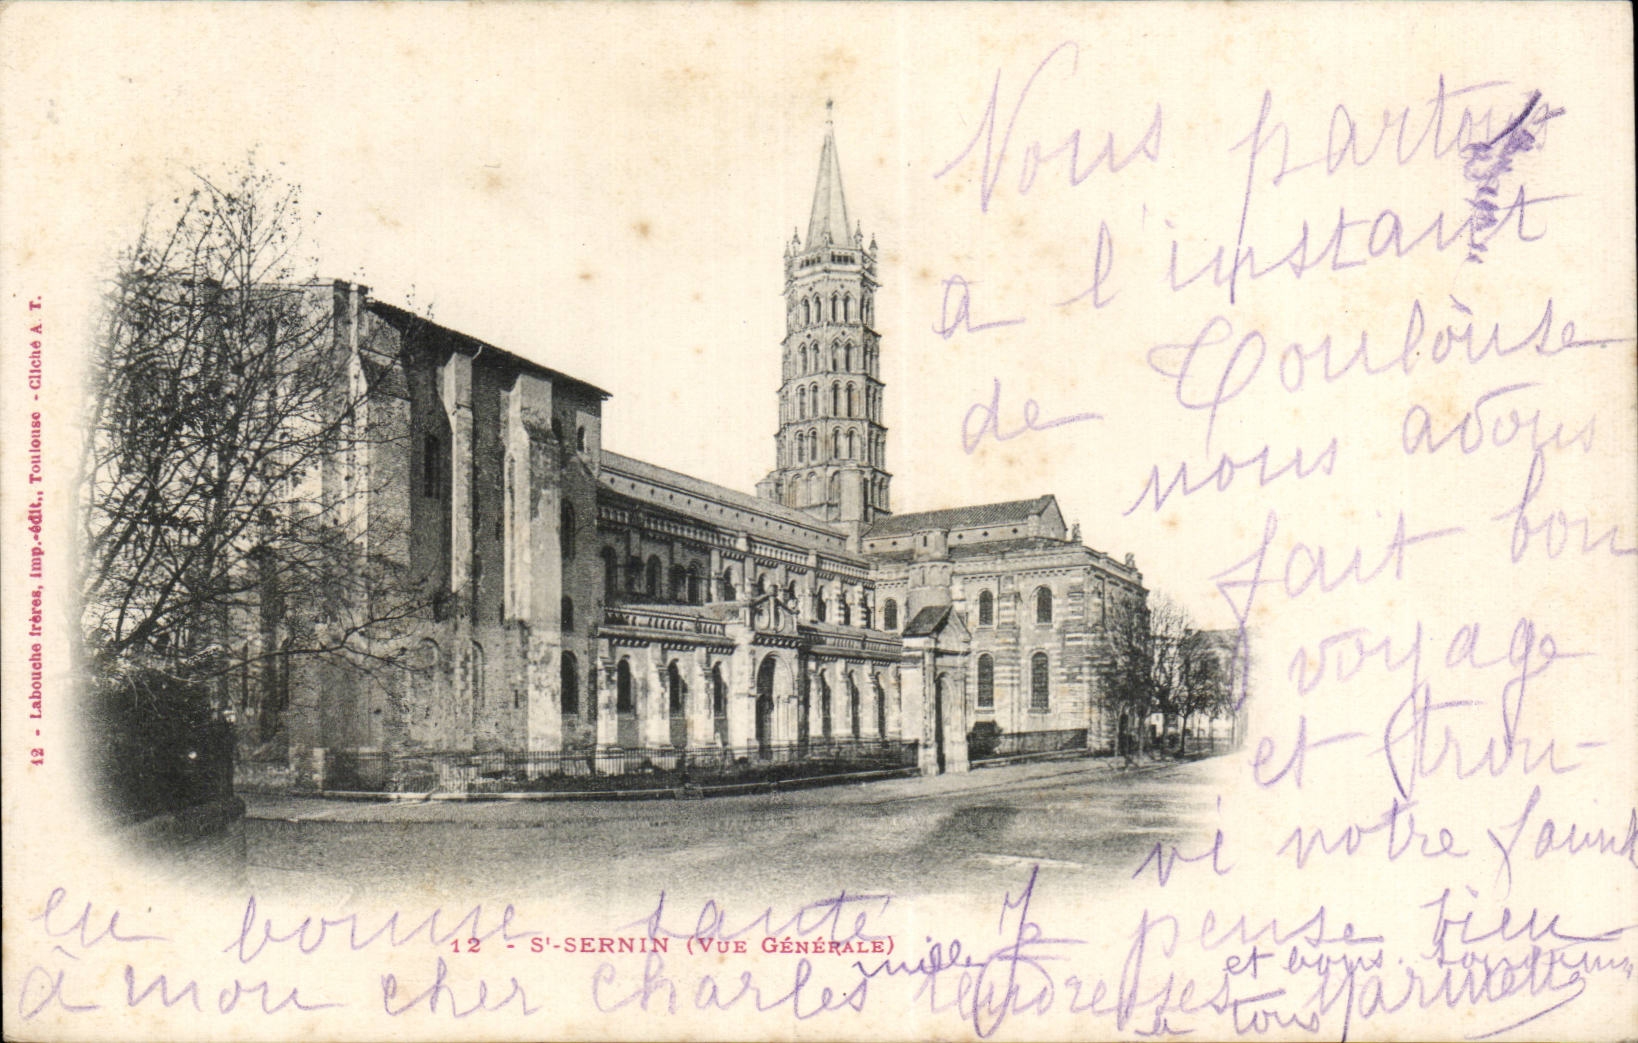 12 - Labouche frères, imp.-édit., Toulouse - Cliché A. T.
Nous partons
a l'instant
de Toulouse
nous avons
fait bon
voyage
et trou-
vé notre
en bonne santé Je pense bien
à mon cher Charles mille tendresses
et bons
a tous
12 - St-SERNIN (VUE GÉNÉRALE)